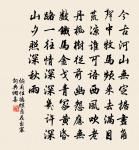 今古河山無定據畫角
聲中牧馬頻來去滿目
荒涼誰可語西風吹老
丹楓樹從前幽怨應無
數鐵馬金戈青冢黃昏
路一往情深深幾許深
山夕照深秋雨
納蘭性德蝶戀花出塞
詞典網